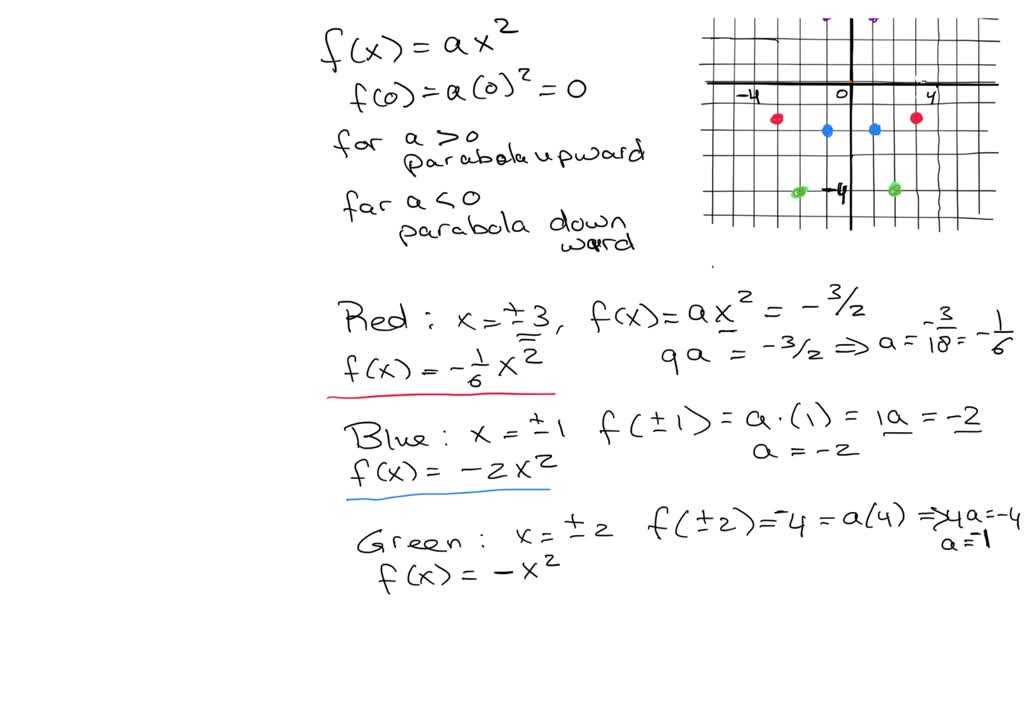 f(x) = ax²
f(0) = a(0)² = 0
for a > 0
parabola upward
far a < 0
parabola down
ward
-4 0 4
-4
Red : x = ±3, f(x) = ax² = -3/2
9a = -3/2 ⇒ a = -3/18 = -1/6
f(x) = -1/6 x²
Blue : x = ±1 f(±1) = a·(1) = 1a = -2
a = -2
f(x) = -2x²
Green : x = ±2 f(±2) = -4 = a(4) ⇒ 4a = -4
a = -1
f(x) = -x²